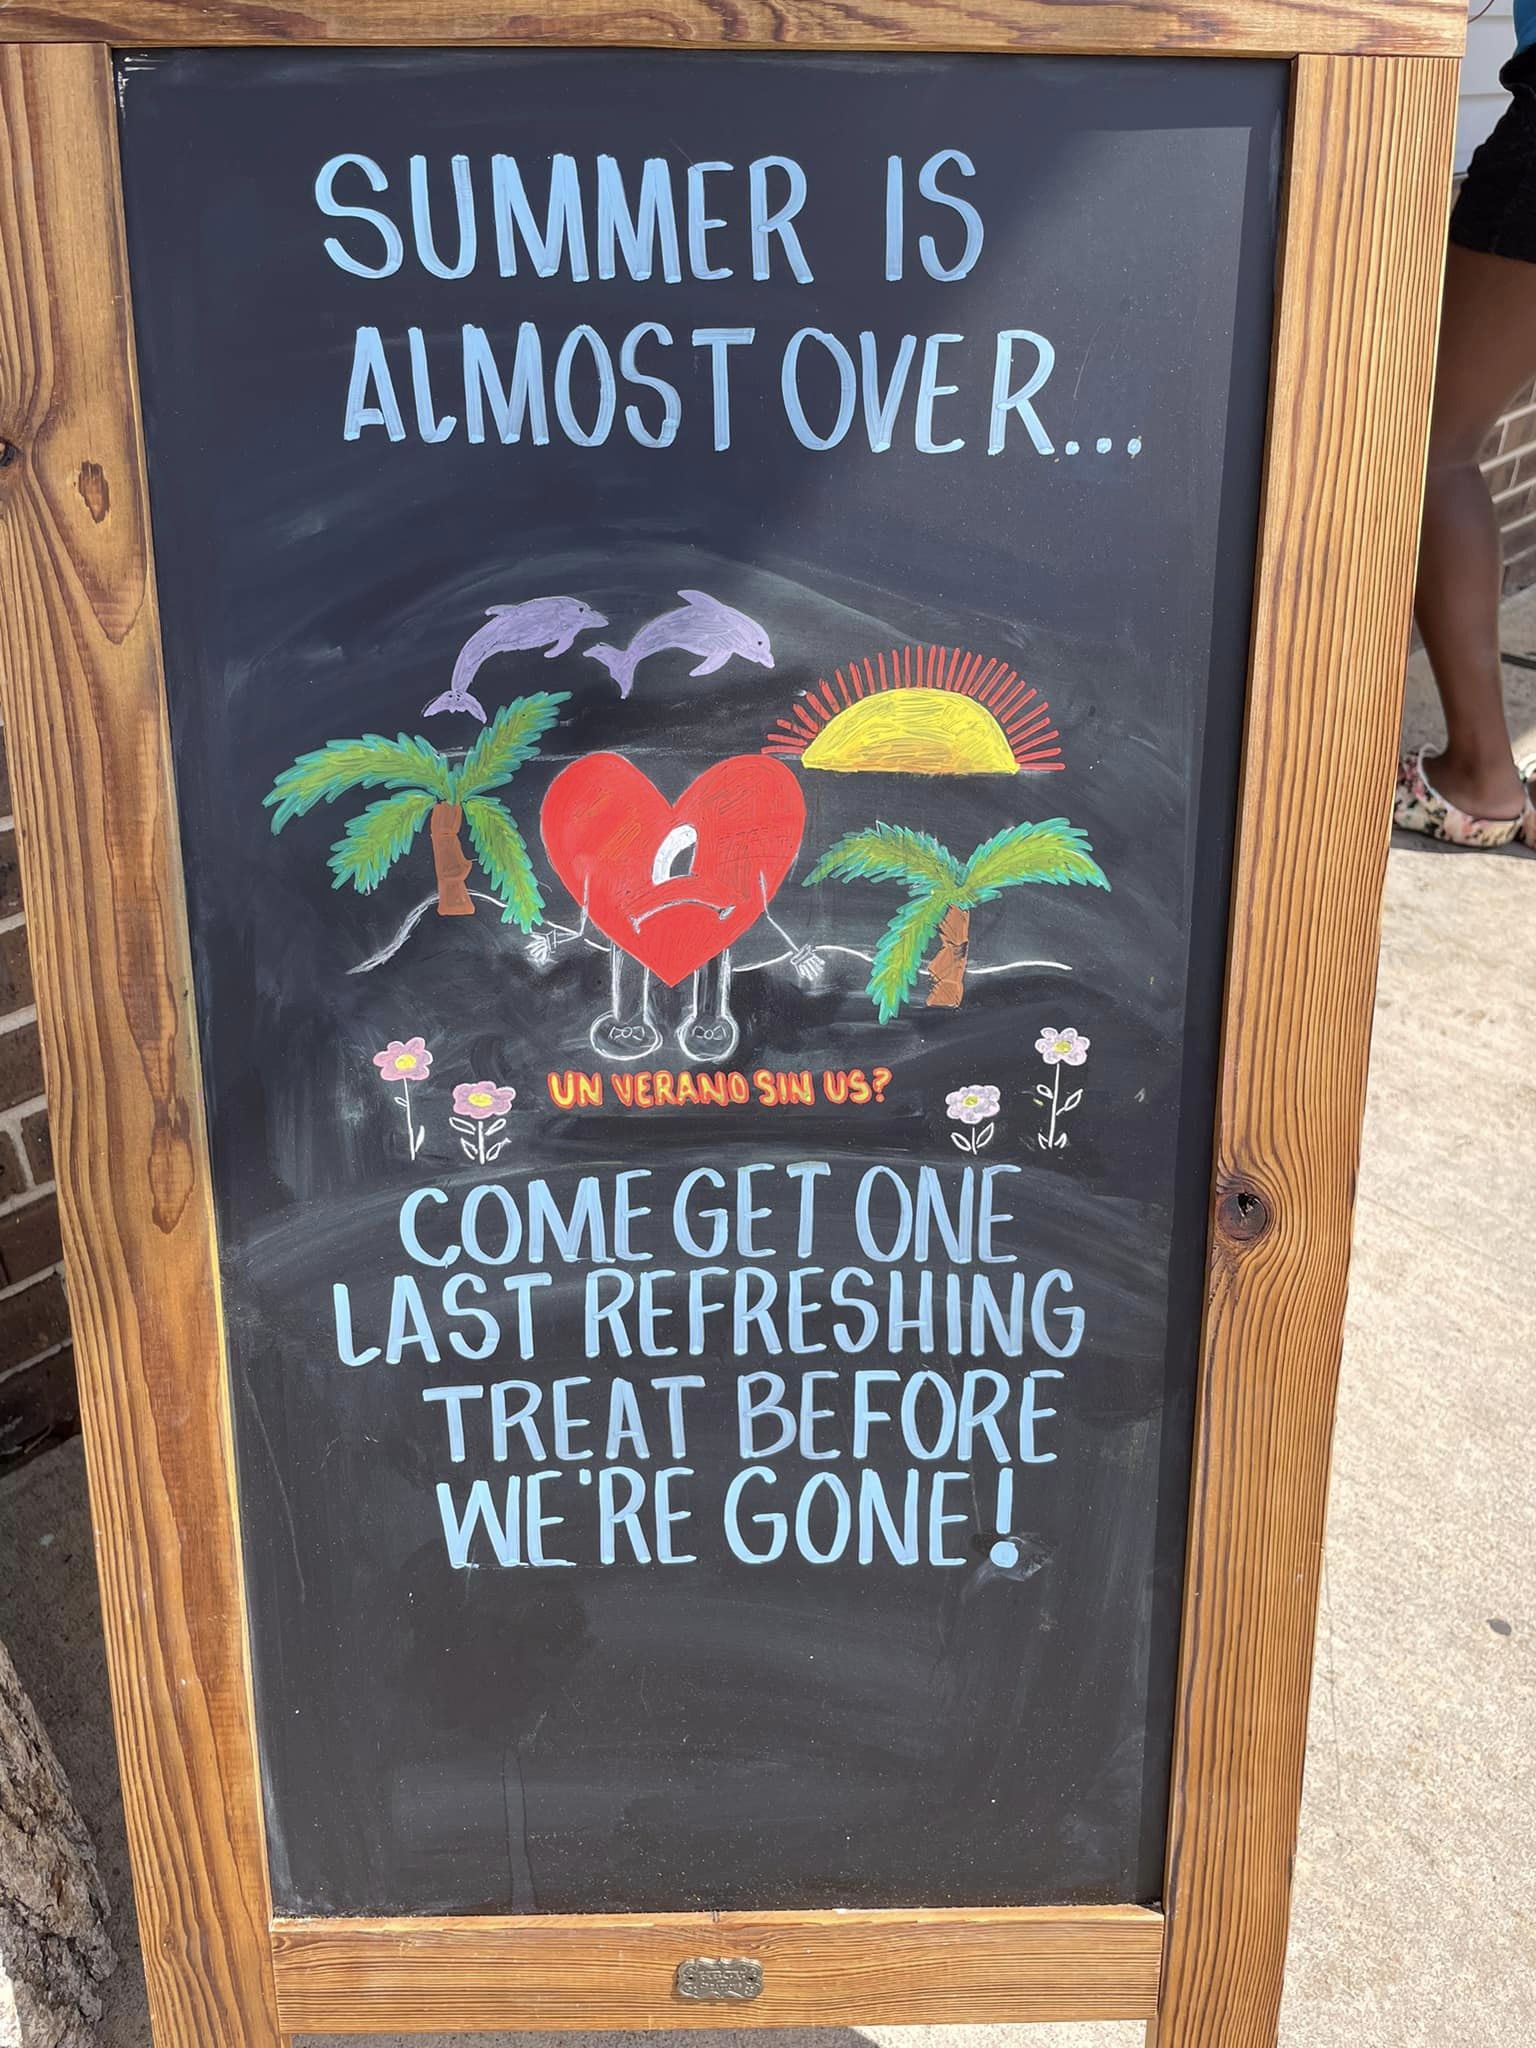 SUMMER IS
ALMOST OVER...
UN VERANO SIN US?
COME GET ONE
LAST REFRESHING
TREAT BEFORE
WE'RE GONE!